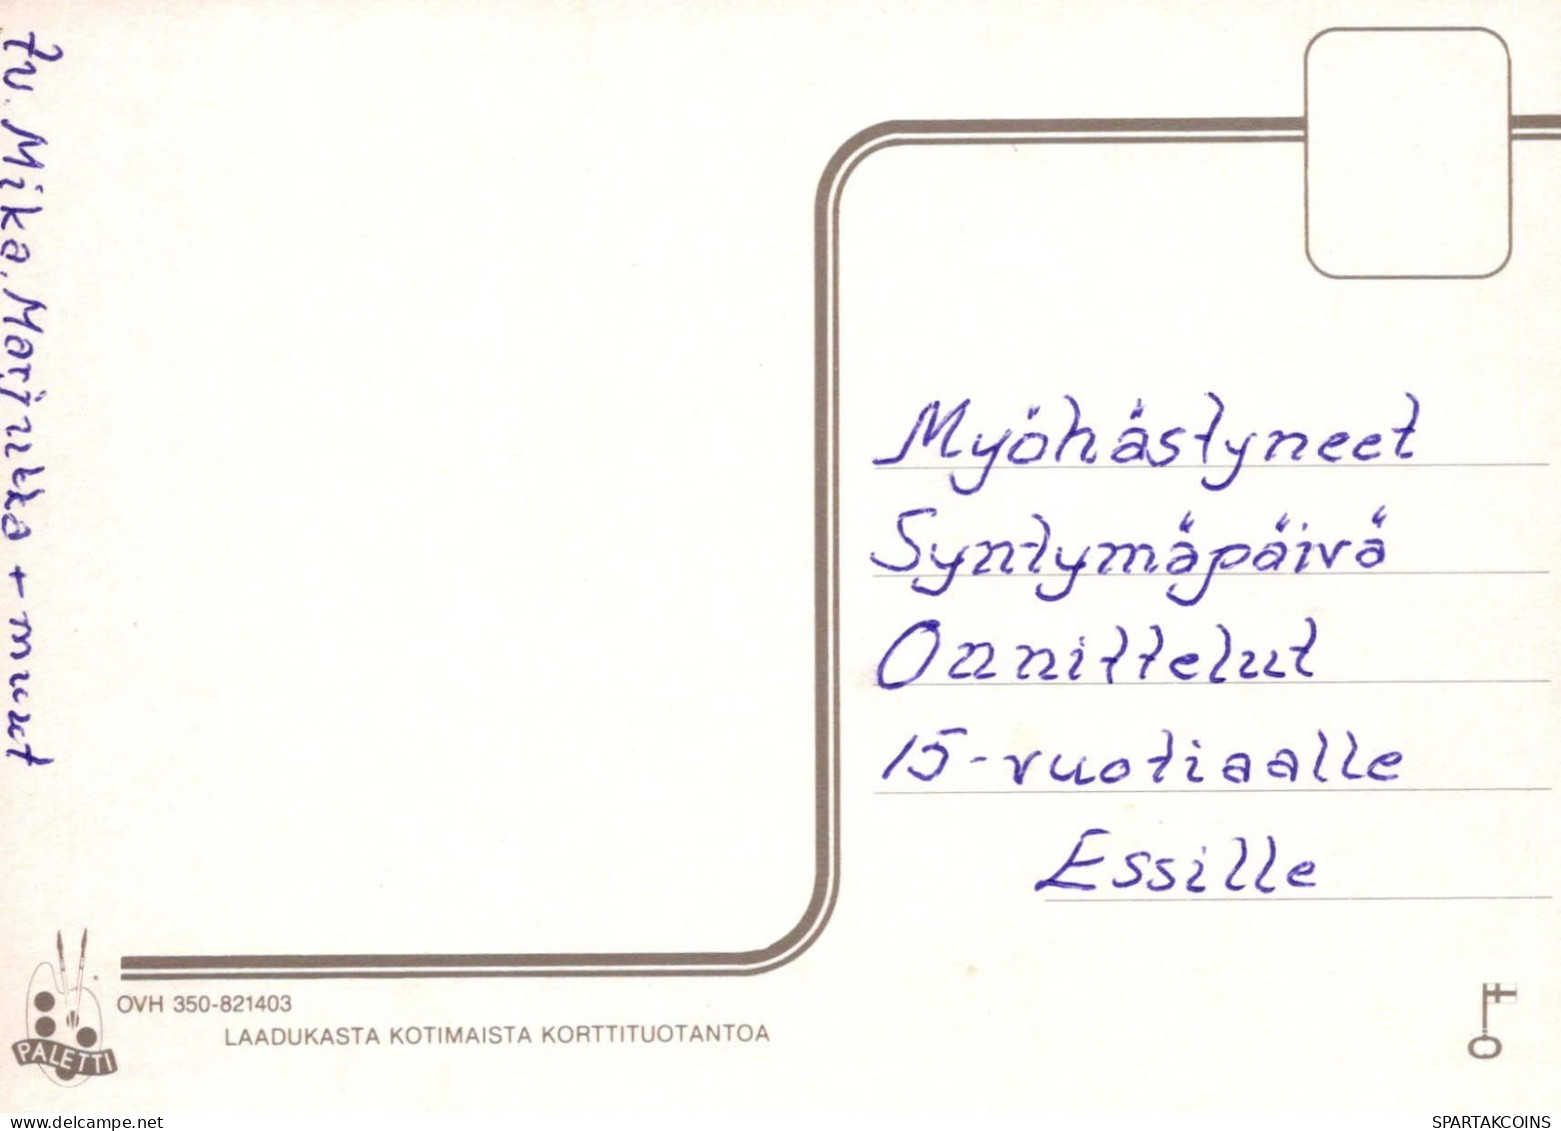 Myöhästyneet
Syntymäpäivä
Onnittelut
15-vuotiaalle
Essille
tv. Mika, Marjukka + muut
OVH 350-821403
LAADUKASTA KOTIMAISTA KORTTITUOTANTOA
PALETTI
delcampe.net
SPARTAKCOINS